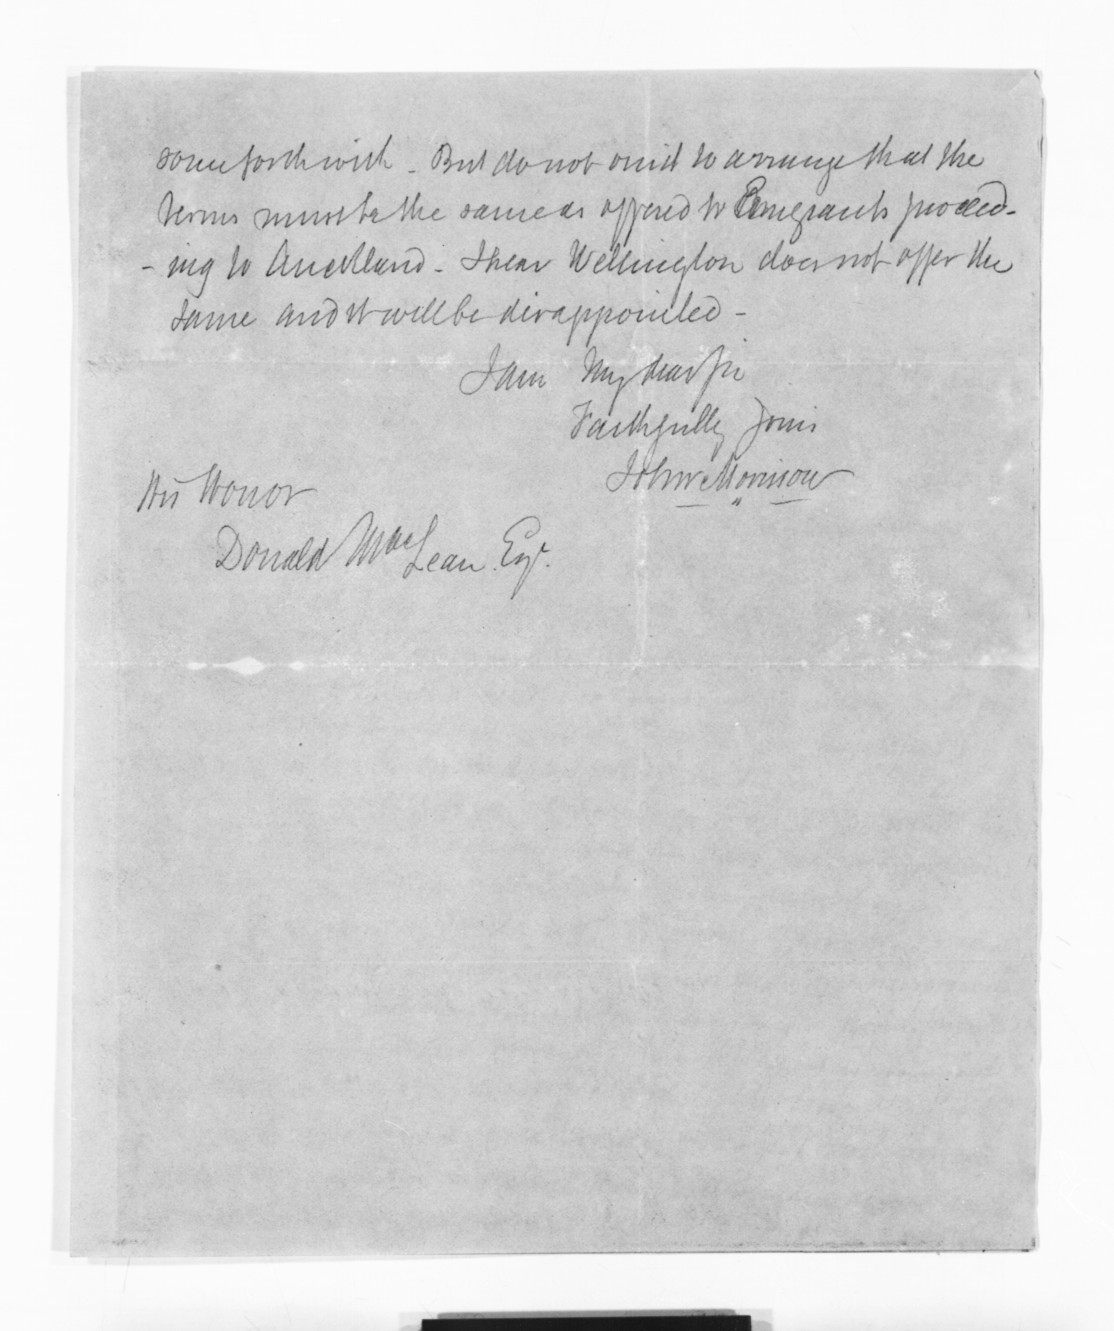 some forthwith - But do not omit to arrange that the
terms must be the same as offered to Emigrants proceed-
- ing to Auckland - I hear Wellington does not offer the
same and it will be disappointed -
I am My dear Sir
Faithfully Yours
John Morrison
His Honor
Donald MacLean. Esqr.